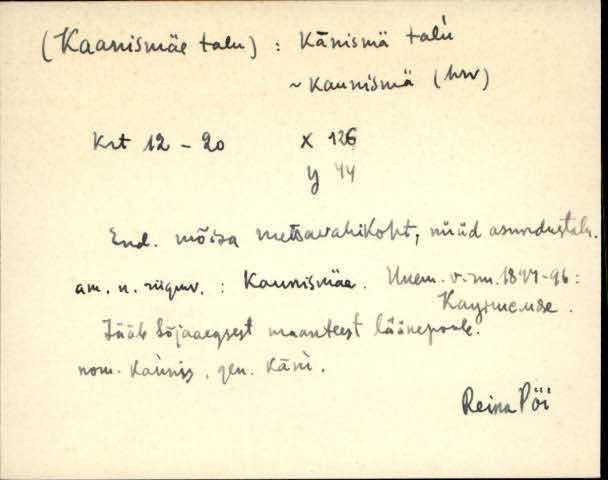 (Kaanismäe talu) : Kānismä talu
~ Kaunismä (hrv)
Krt 12 - 20 X 126
y 44
End. mõisa metsavahikoht, nüüd asundustalu.
am. n. : Kaunismäe. Unem. 1844-96:
Jääb Sõjaaegsest maanteest läänepoole.
nom. gen. Kāni.
Reina Pöi